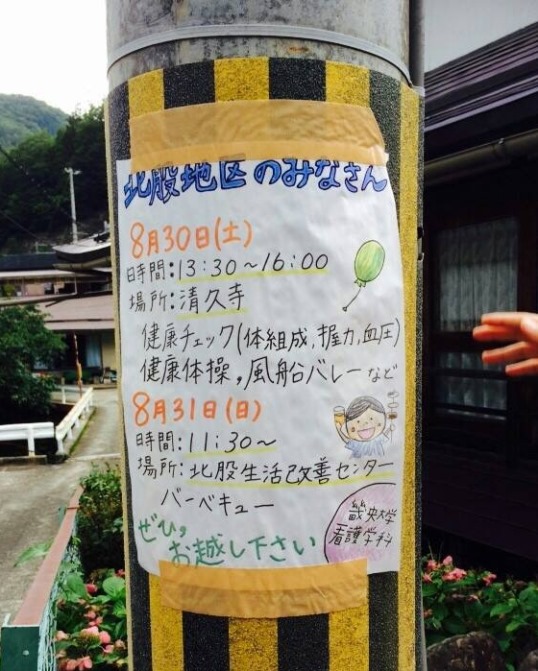 北股地区のみなさん
8月30日(土)
日時間:13:30~16:00
場所:清久寺
健康チェック(体組成,握力,血圧)
健康体操,風船バレーなど
8月31日(日)
時間:11:30~
場所:北股生活改善センター
バーベキュー
ぜひ,
お越し下さい
畿央大学
看護学科